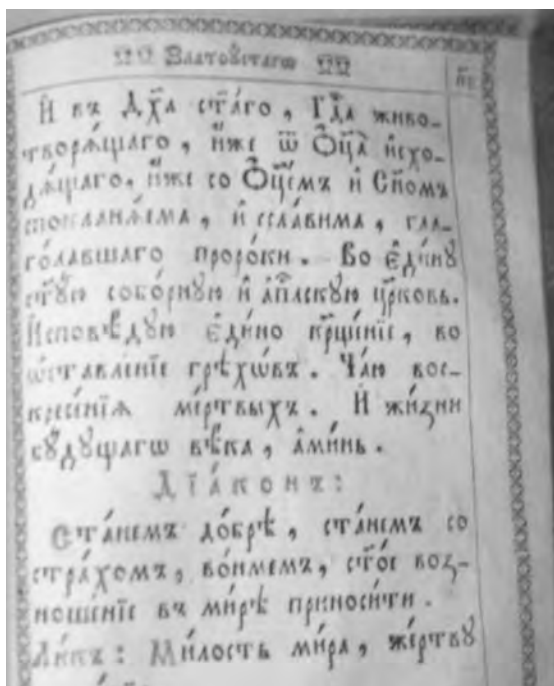 Златоꙋстагѡ
И҆ въ Дх҃а ст҃а́го, Гд҃а живо-
творѧ́щаго, и҆́же ѿ Ѻ҆ц҃а̀ и҆схо-
дѧ́щаго. и҆́же со Ѻ҆ц҃е́мъ и҆ Сн҃омъ
спокланѧ́ема, и҆ ссла́вима, гла-
го́лавшаго проро́ки. Во є҆ди́нꙋ
ст҃ꙋ́ю собо́рнꙋю и҆ а҆пⷭ҇лскꙋю цр҃ковь.
И҆сповѣ́дꙋю є҆ди́но крⷭ҇ще́нїе, во
ѡ҆ставле́нїе грѣхѡ́въ. Ча́ю вос-
кресе́нїѧ ме́ртвыхъ. И҆ жи́зни
бꙋ́дꙋщагѡ вѣ́ка, а҆ми́нь.
Дїа́конъ:
Ста́немъ до́брѣ, ста́немъ со
стра́хомъ, во́нмемъ, ст҃о́е воз-
ноше́нїе въ ми́рѣ приноси́ти.
Ли́къ: Ми́лость ми́ра, же́ртвꙋ